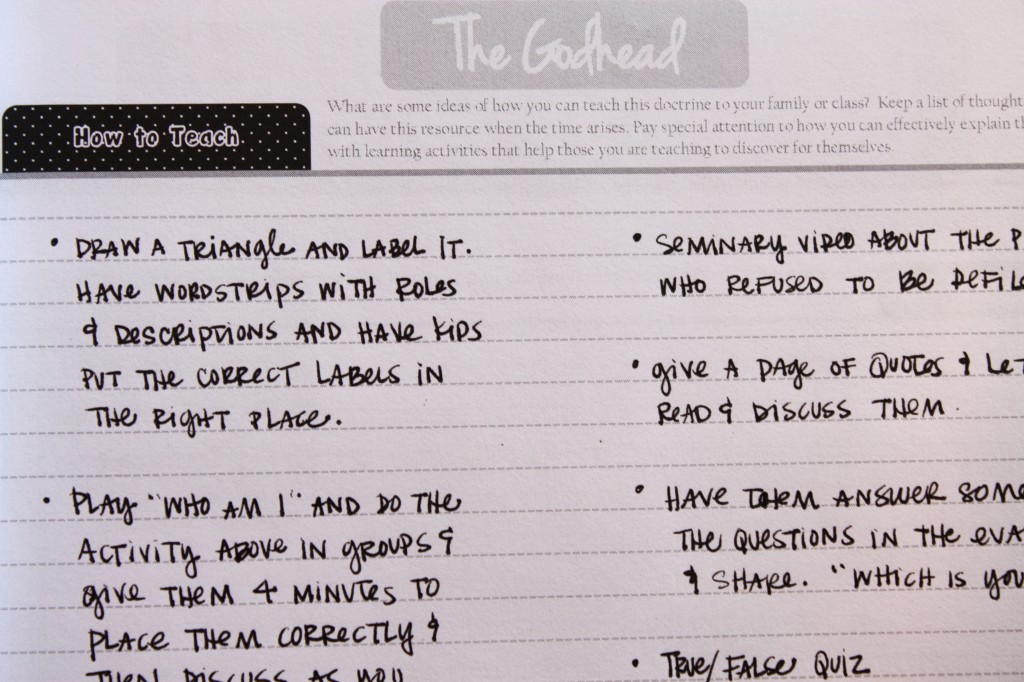 The Godhead
How to Teach
What are some ideas of how you can teach this doctrine to your family or class? Keep a list of thought
can have this resource when the time arises. Pay special attention to how you can effectively explain th
with learning activities that help those you are teaching to discover for themselves.
• DRAW A TRIANGLE AND LABEL IT.
HAVE WORDSTRIPS WITH ROLES
& DESCRIPTIONS AND HAVE KIDS
PUT THE CORRECT LABELS IN
THE RIGHT PLACE.
• PLAY "WHO AM I" AND DO THE
ACTIVITY ABOVE IN GROUPS &
GIVE THEM 4 MINUTES TO
PLACE THEM CORRECTLY &
THEN DISCUSS AS YOU
• SEMINARY VIDEO ABOUT THE P
WHO REFUSED TO BE DEFIL
• GIVE A PAGE OF QUOTES & LET
READ & DISCUSS THEM.
• HAVE THEM ANSWER SOME
THE QUESTIONS IN THE EVA
& SHARE. "WHICH IS YOU
• TRUE/FALSE QUIZ